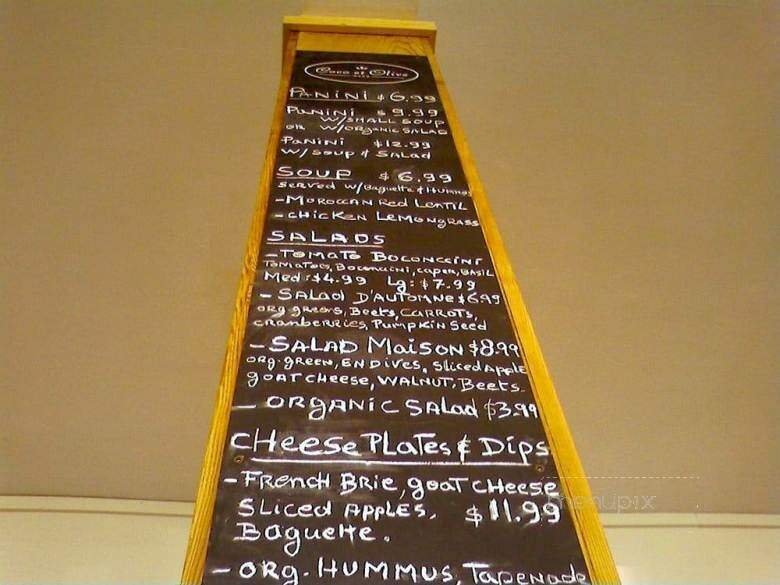 Coco et Olive
PANINI $6.99
PANINI $9.99
W/SMALL SOUP
OR W/ORGANIC SALAD
PANINI $12.99
W/ SOUP & SALAD
SOUP $6.99
SERVED W/Baguette & HUMMUS
- MOROCCAN Red LENTIL
- CHICKEN LEMONGRASS
SALADS
- TOMATO BOCONCCINI
TOMATOES, BOCONCCINI, CAPER, BASIL
Med: $4.99 Lg: $7.99
- SALAD D'AUTOMNE $6.99
org. greens, Beets, CARROTS,
CRANBERRIES, PUMPKIN Seed
- SALAD MAISON $8.99
org. green, ENDIVES, Sliced Apple
goAT CHeese, WALNUT, Beets.
- ORGANIC SALAD $3.99
CHeese PLATES & DIPS
- FRENCH BRIE, goAT CHEESE
SLICED APPLES. $11.99
Baguette.
- ORG. HUMMUS, Tapenade
menupix